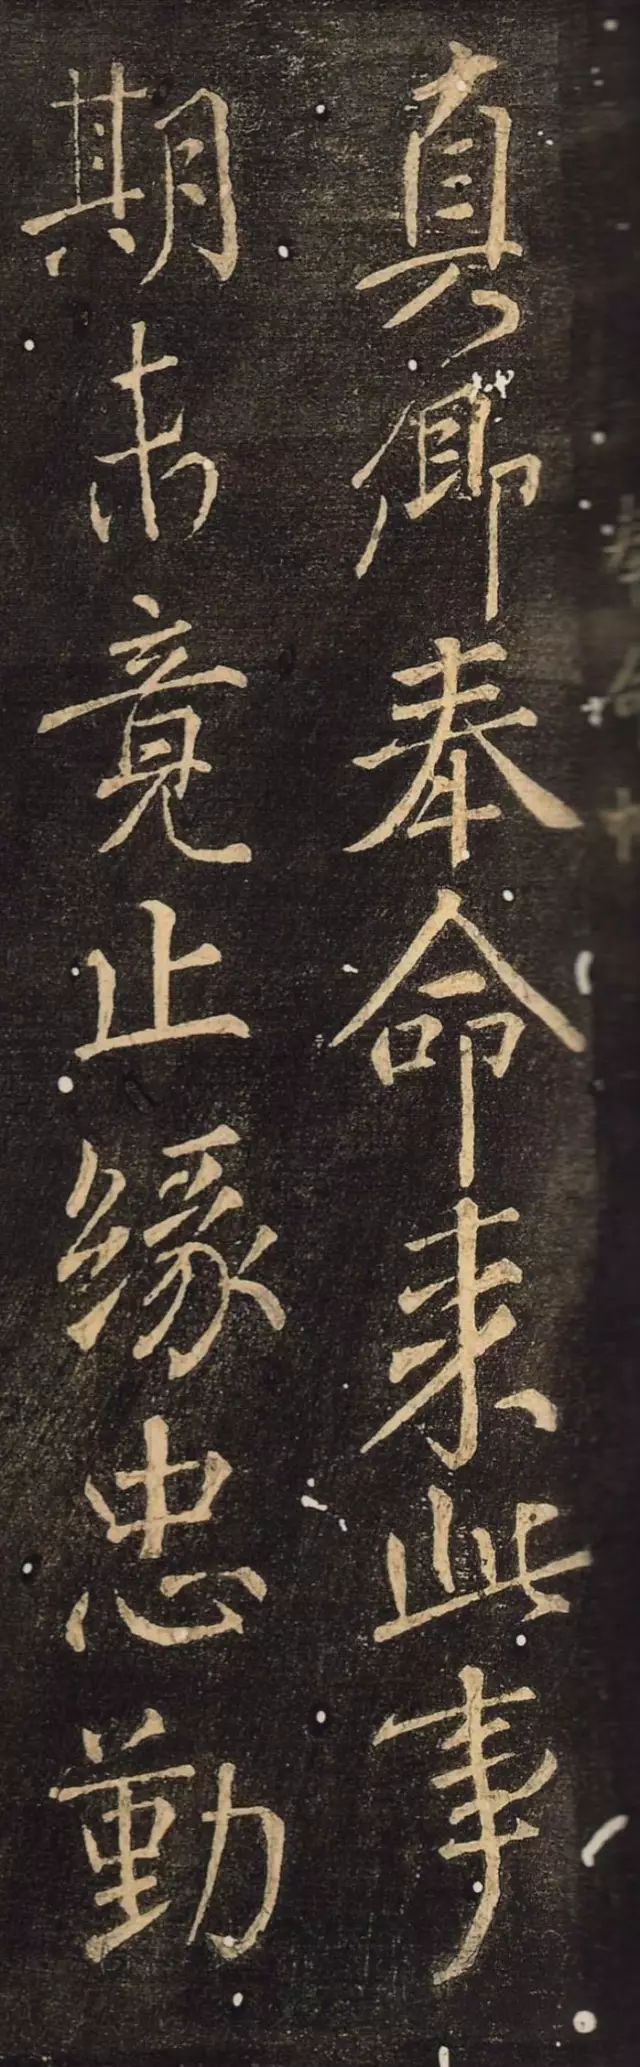 真卿奉命来此事
期未竟止緣忠勤